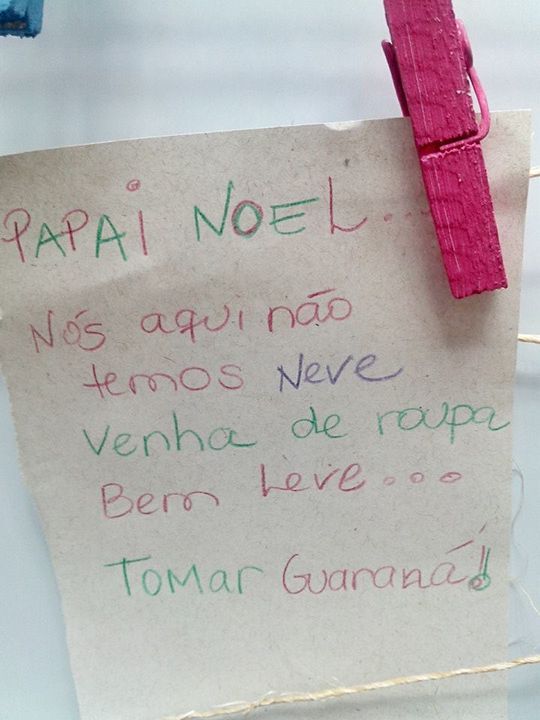 PAPAi NOEL...
Nós aqui não
temos Neve
Venha de roupa
Bem Leve...
TOMar Guaraná!